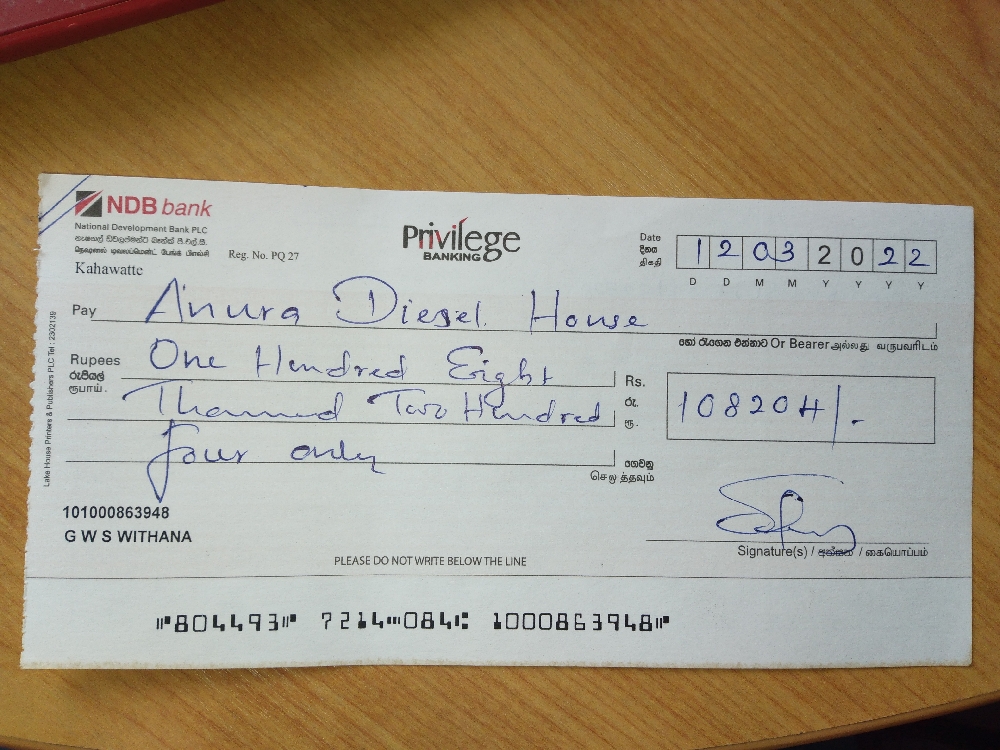 NDB bank
National Development Bank PLC
නැෂනල් ඩිවලප්මන්ට් බෑන්ක් පී.එල්.සී.
Reg. No. PQ 27
Kahawatte
Privilege
BANKING
Date
දිනය
திகதி
1 2 0 3 2 0 2 2
D D M M Y Y Y Y
Pay Anura Diesel House
හෝ රැගෙන එන්නාට Or Bearer அல்லது வருபவரிடம்
Rupees One Hundred Eight
රුපියල්
ரூபாய்.
Thousand Two Hundred
Four only
Rs.
රු.
ரூ.
108204/-
ගෙවනු
செலுத்தவும்
Lake House Printers & Publishers PLC Tel : 2302139
101000863948
G W S WITHANA
Signature(s) / අත්සන / கையொப்பம்
PLEASE DO NOT WRITE BELOW THE LINE
⑈804493⑈ 7214⑉084⑆ 1000863948⑈